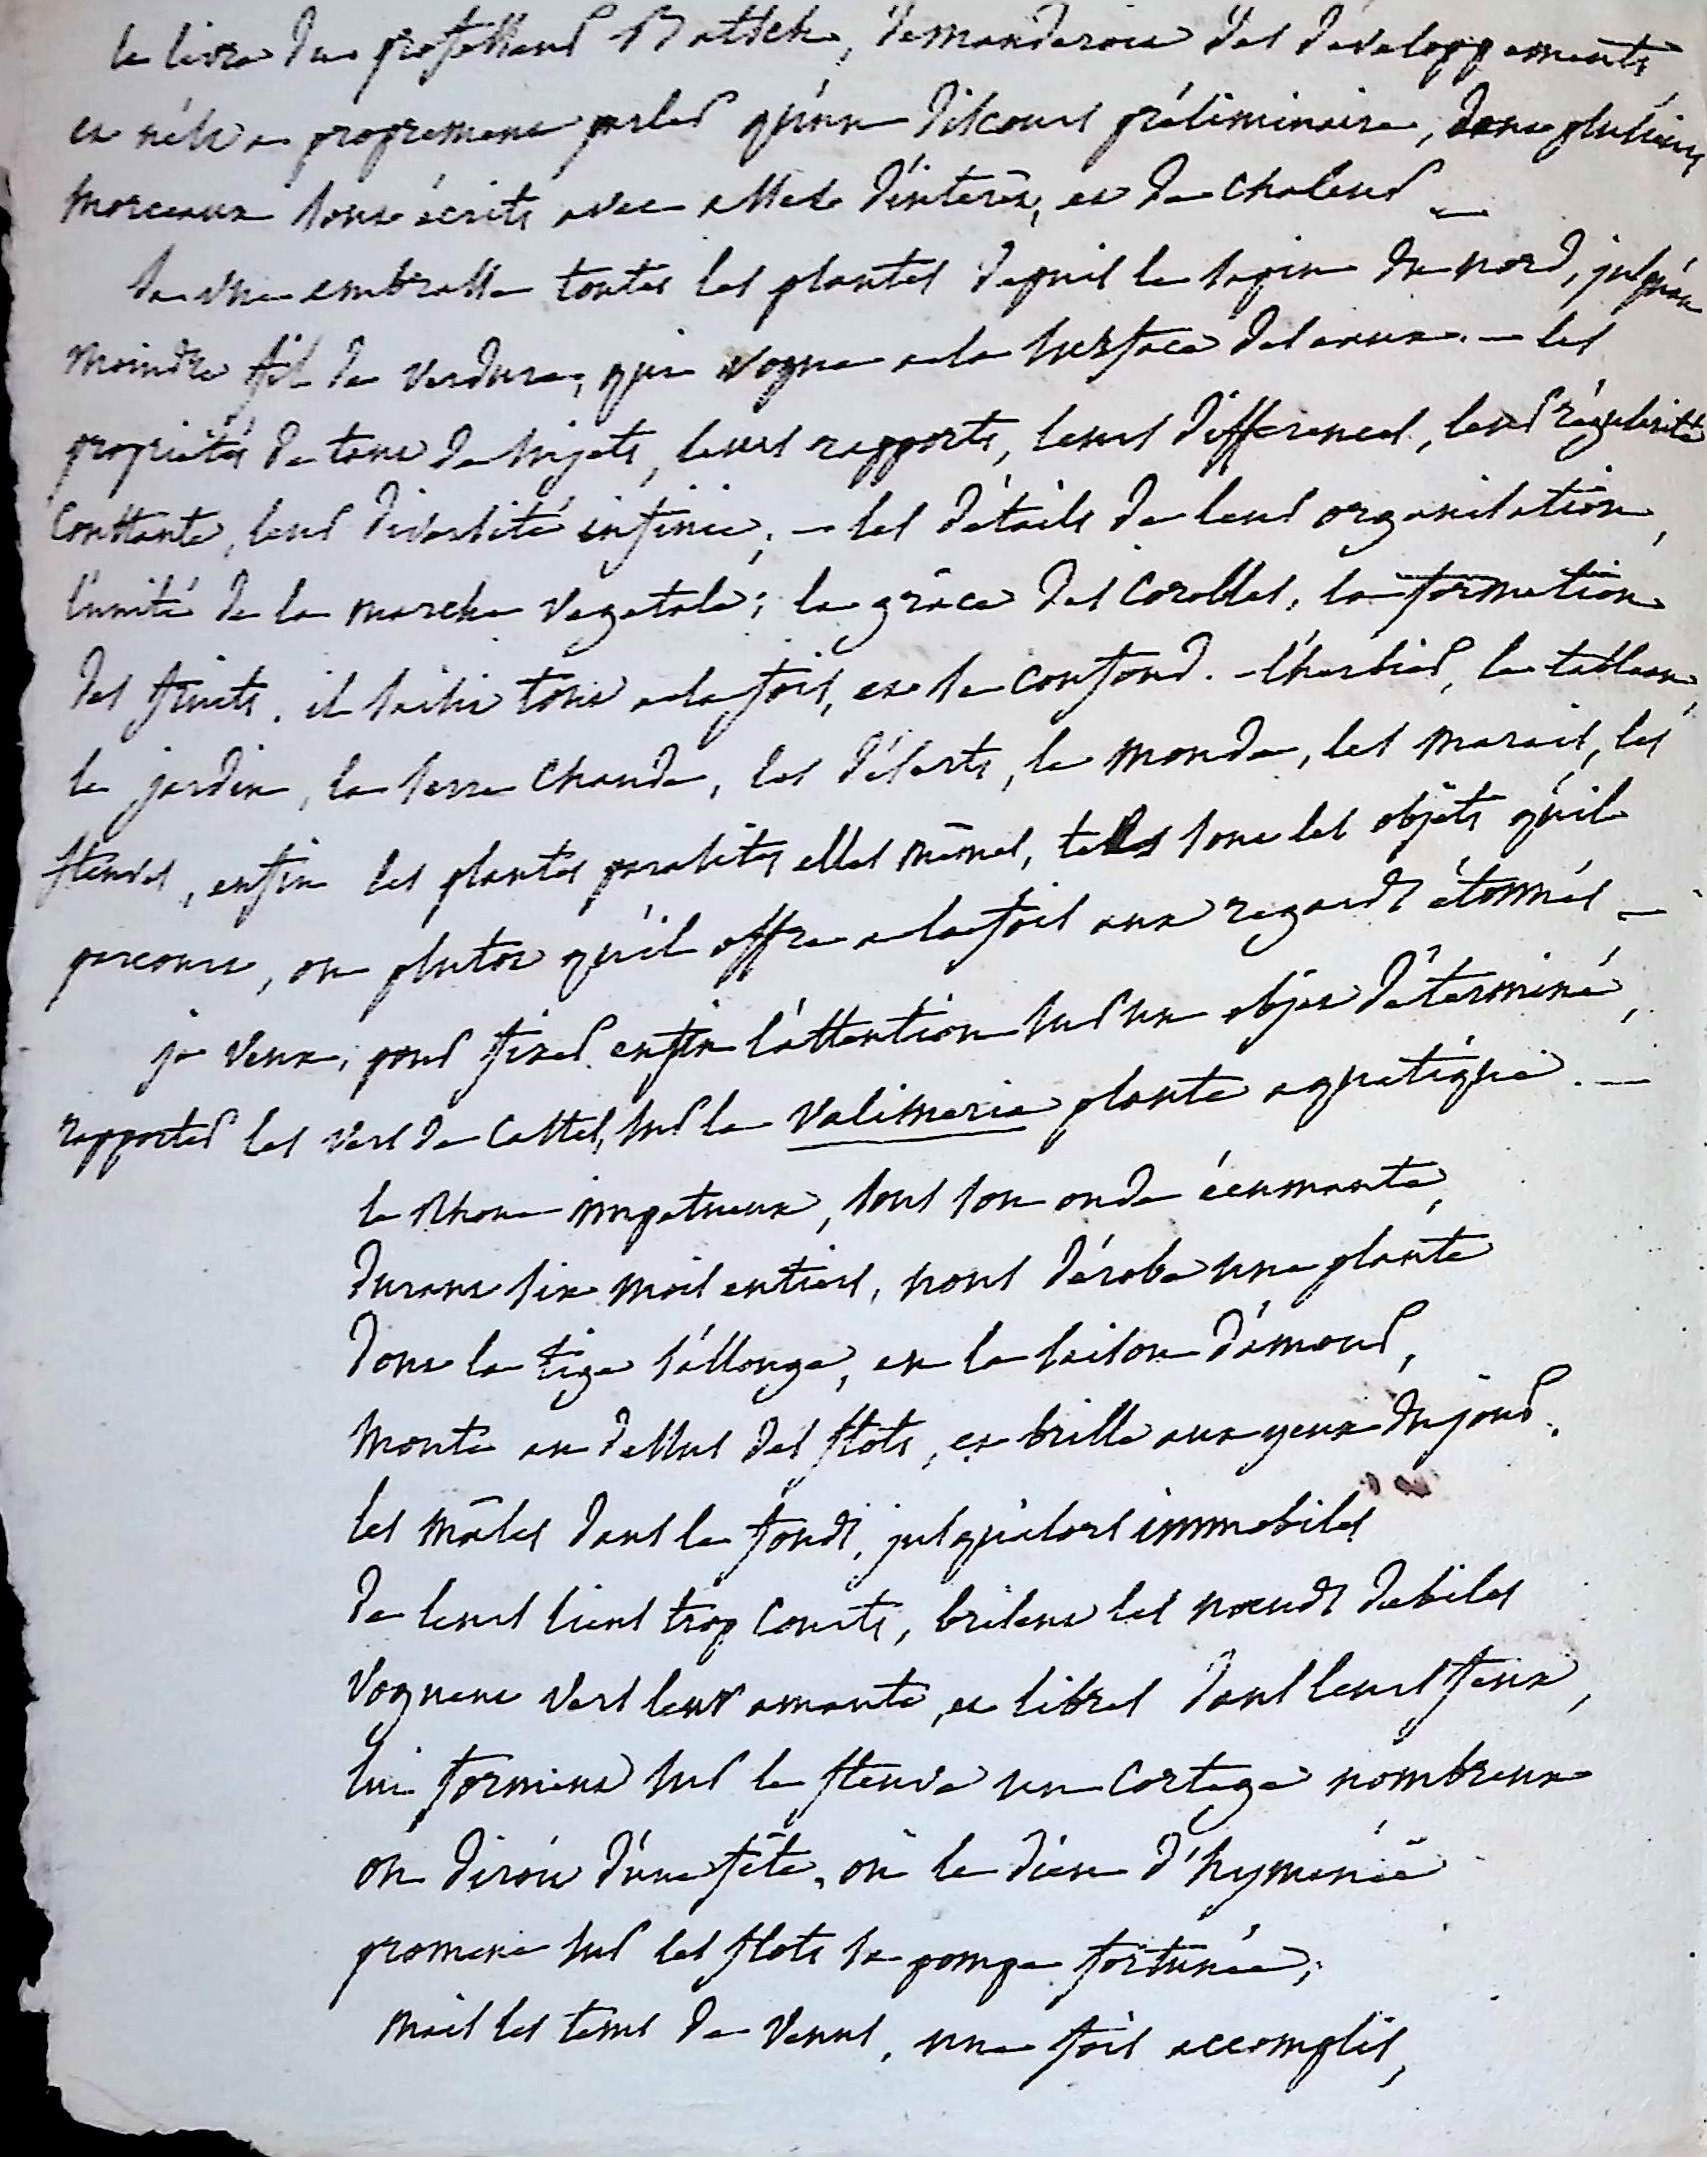 le livre du professeur Batsch, demanderoit des développements,
et n'est a proprement parler qu'un discours préliminaire, dont plusieurs
morceaux sont écrits avec assez d'interêt, et de chaleur —
sa vue embrasse toutes les plantes depuis le sapin du nord, jusqu'au
moindre fil de verdure, qui vogue a la surface des eaux. — les
propriétés de tant de sujets, leurs rapports, leurs differences, leur régularité
constante, leur diversité infinie; — les détails de leur organisation,
l'unité de la marche vegetale; la grâce des corolles, la formation
des fruits. il saisit tout a la fois, et se confond. — l'herbier, le tableau,
le jardin, la serre chaude, les déserts, le monde, les marais, les
fleuves, enfin les plantes parasites elles mêmes, tels sont les objets qu'il
parcourt, ou plutot qu'il offre a la fois aux regards étonnés —
je veux, pour fixer enfin l'attention sur un objet déterminé,
rapporter les vers de Castel, sur la valisneria plante aquatique. —
le Rhone impetueux, sous son onde écumante,
durant six mois entiers, nous dérobe une plante
dont la tige s'allonge, en la saison d'amour,
monte au dessus des flots, et brille aux yeux du jour.
les mâles dans le fonds, jusqu'alors immobiles
de leurs liens trop courts, brisent les nœuds debiles
voguent vers leur amante, et libres dans leurs feux,
lui forment sur le fleuve un cortege nombreux
on diroit d'une fête, où le dieu d'hymenée
promene sur les flots sa pompe fortunée;
mais les tems de Venus, une fois accomplis,